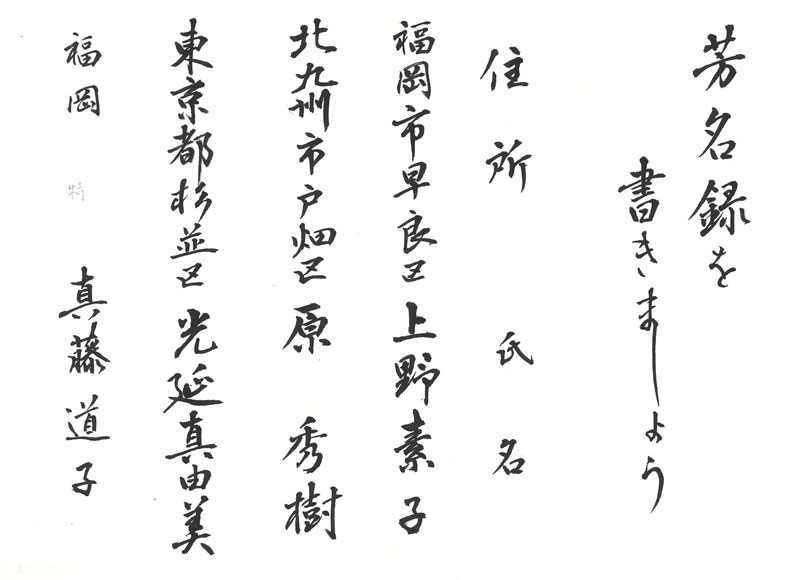 芳名録を
書きましょう
住所 氏名
福岡市早良区 上野素子
北九州市戸畑区 原 秀樹
東京都杉並区 光延真由美
福岡 特 真藤道子